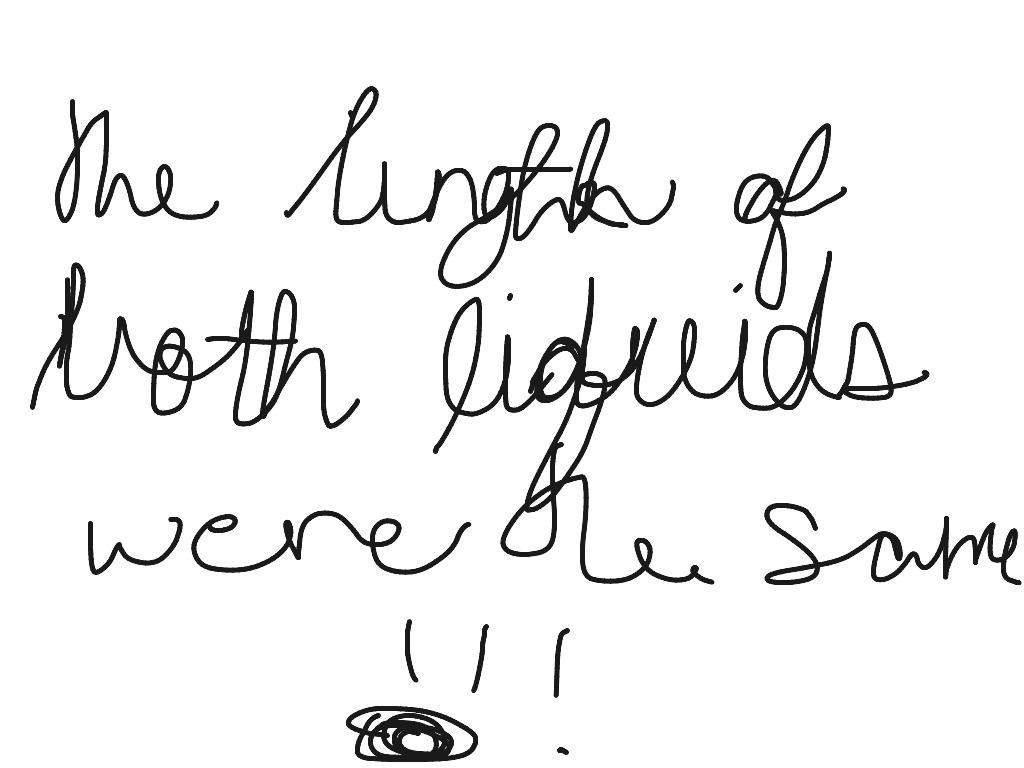 The length of
both liquids
were the same
!!!